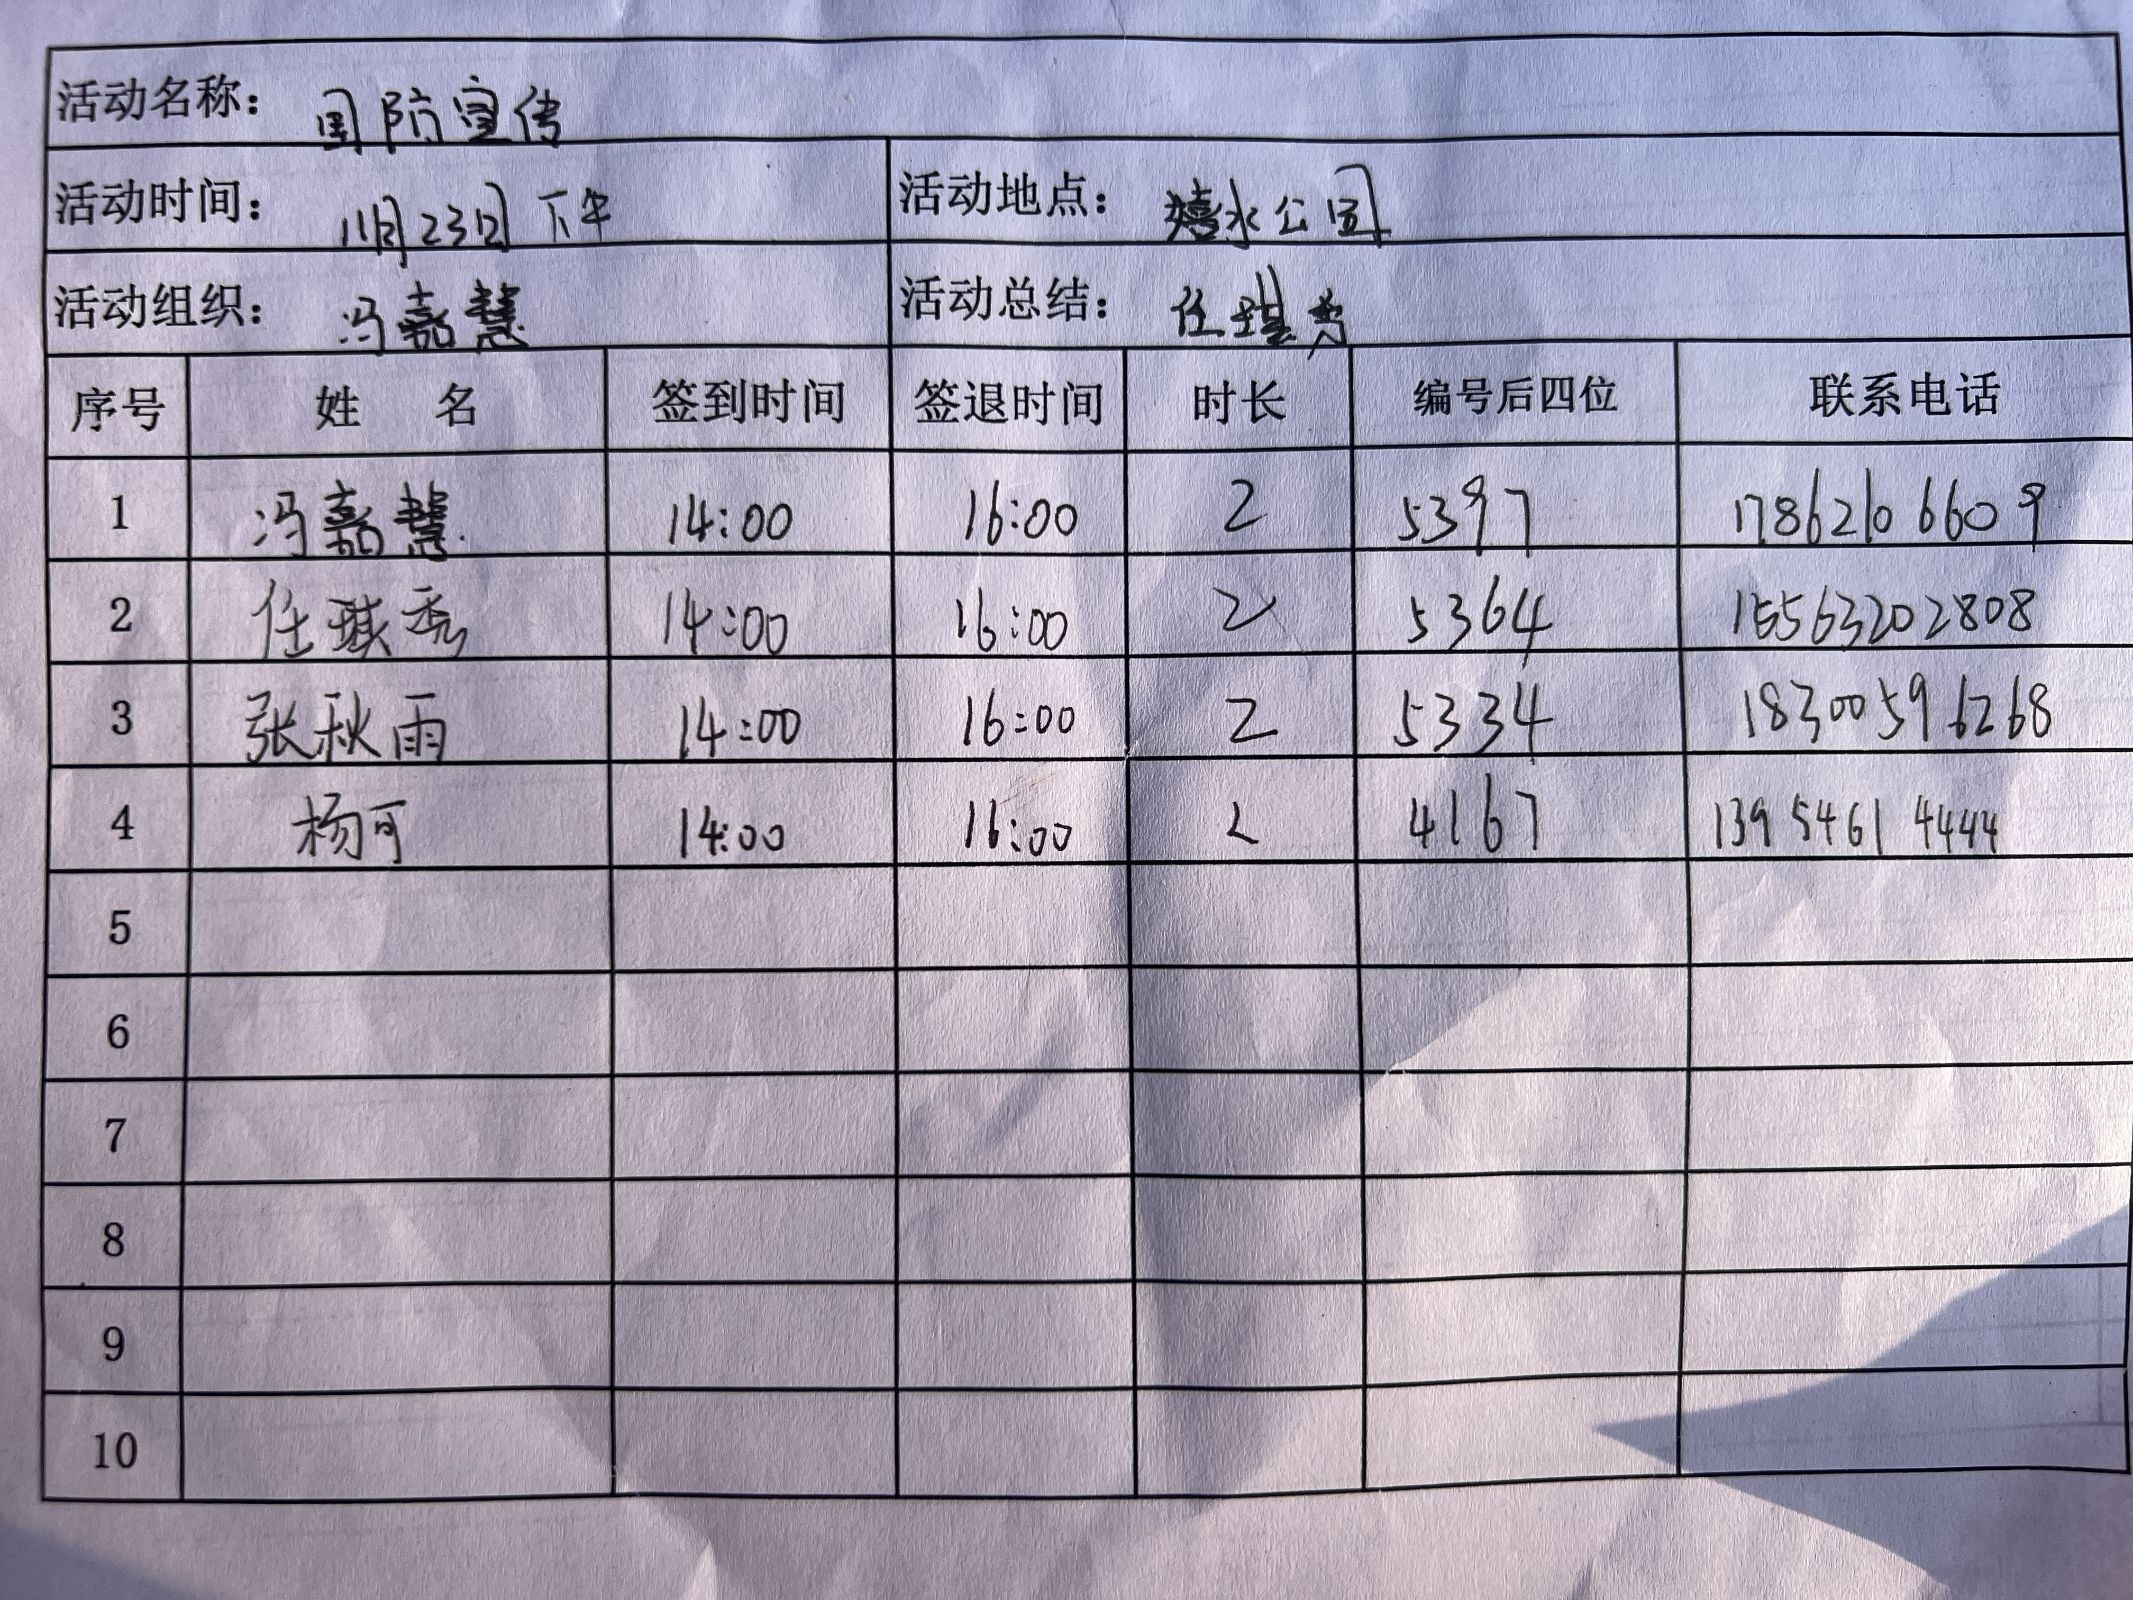 活动名称： 国防宣传
活动时间： 11月23日下午 活动地点： 嬉水公园
活动组织： 冯嘉慧 活动总结： 任琪
序号 姓 名 签到时间 签退时间 时长 编号后四位 联系电话
1 冯嘉慧 14:00 16:00 2 5397 17862106609
2 任琪秀 14:00 16:00 2 5364 15563202808
3 张秋雨 14:00 16:00 2 5334 18300596268
4 杨可 14:00 16:00 2 4167 13954614444
5
6
7
8
9
10